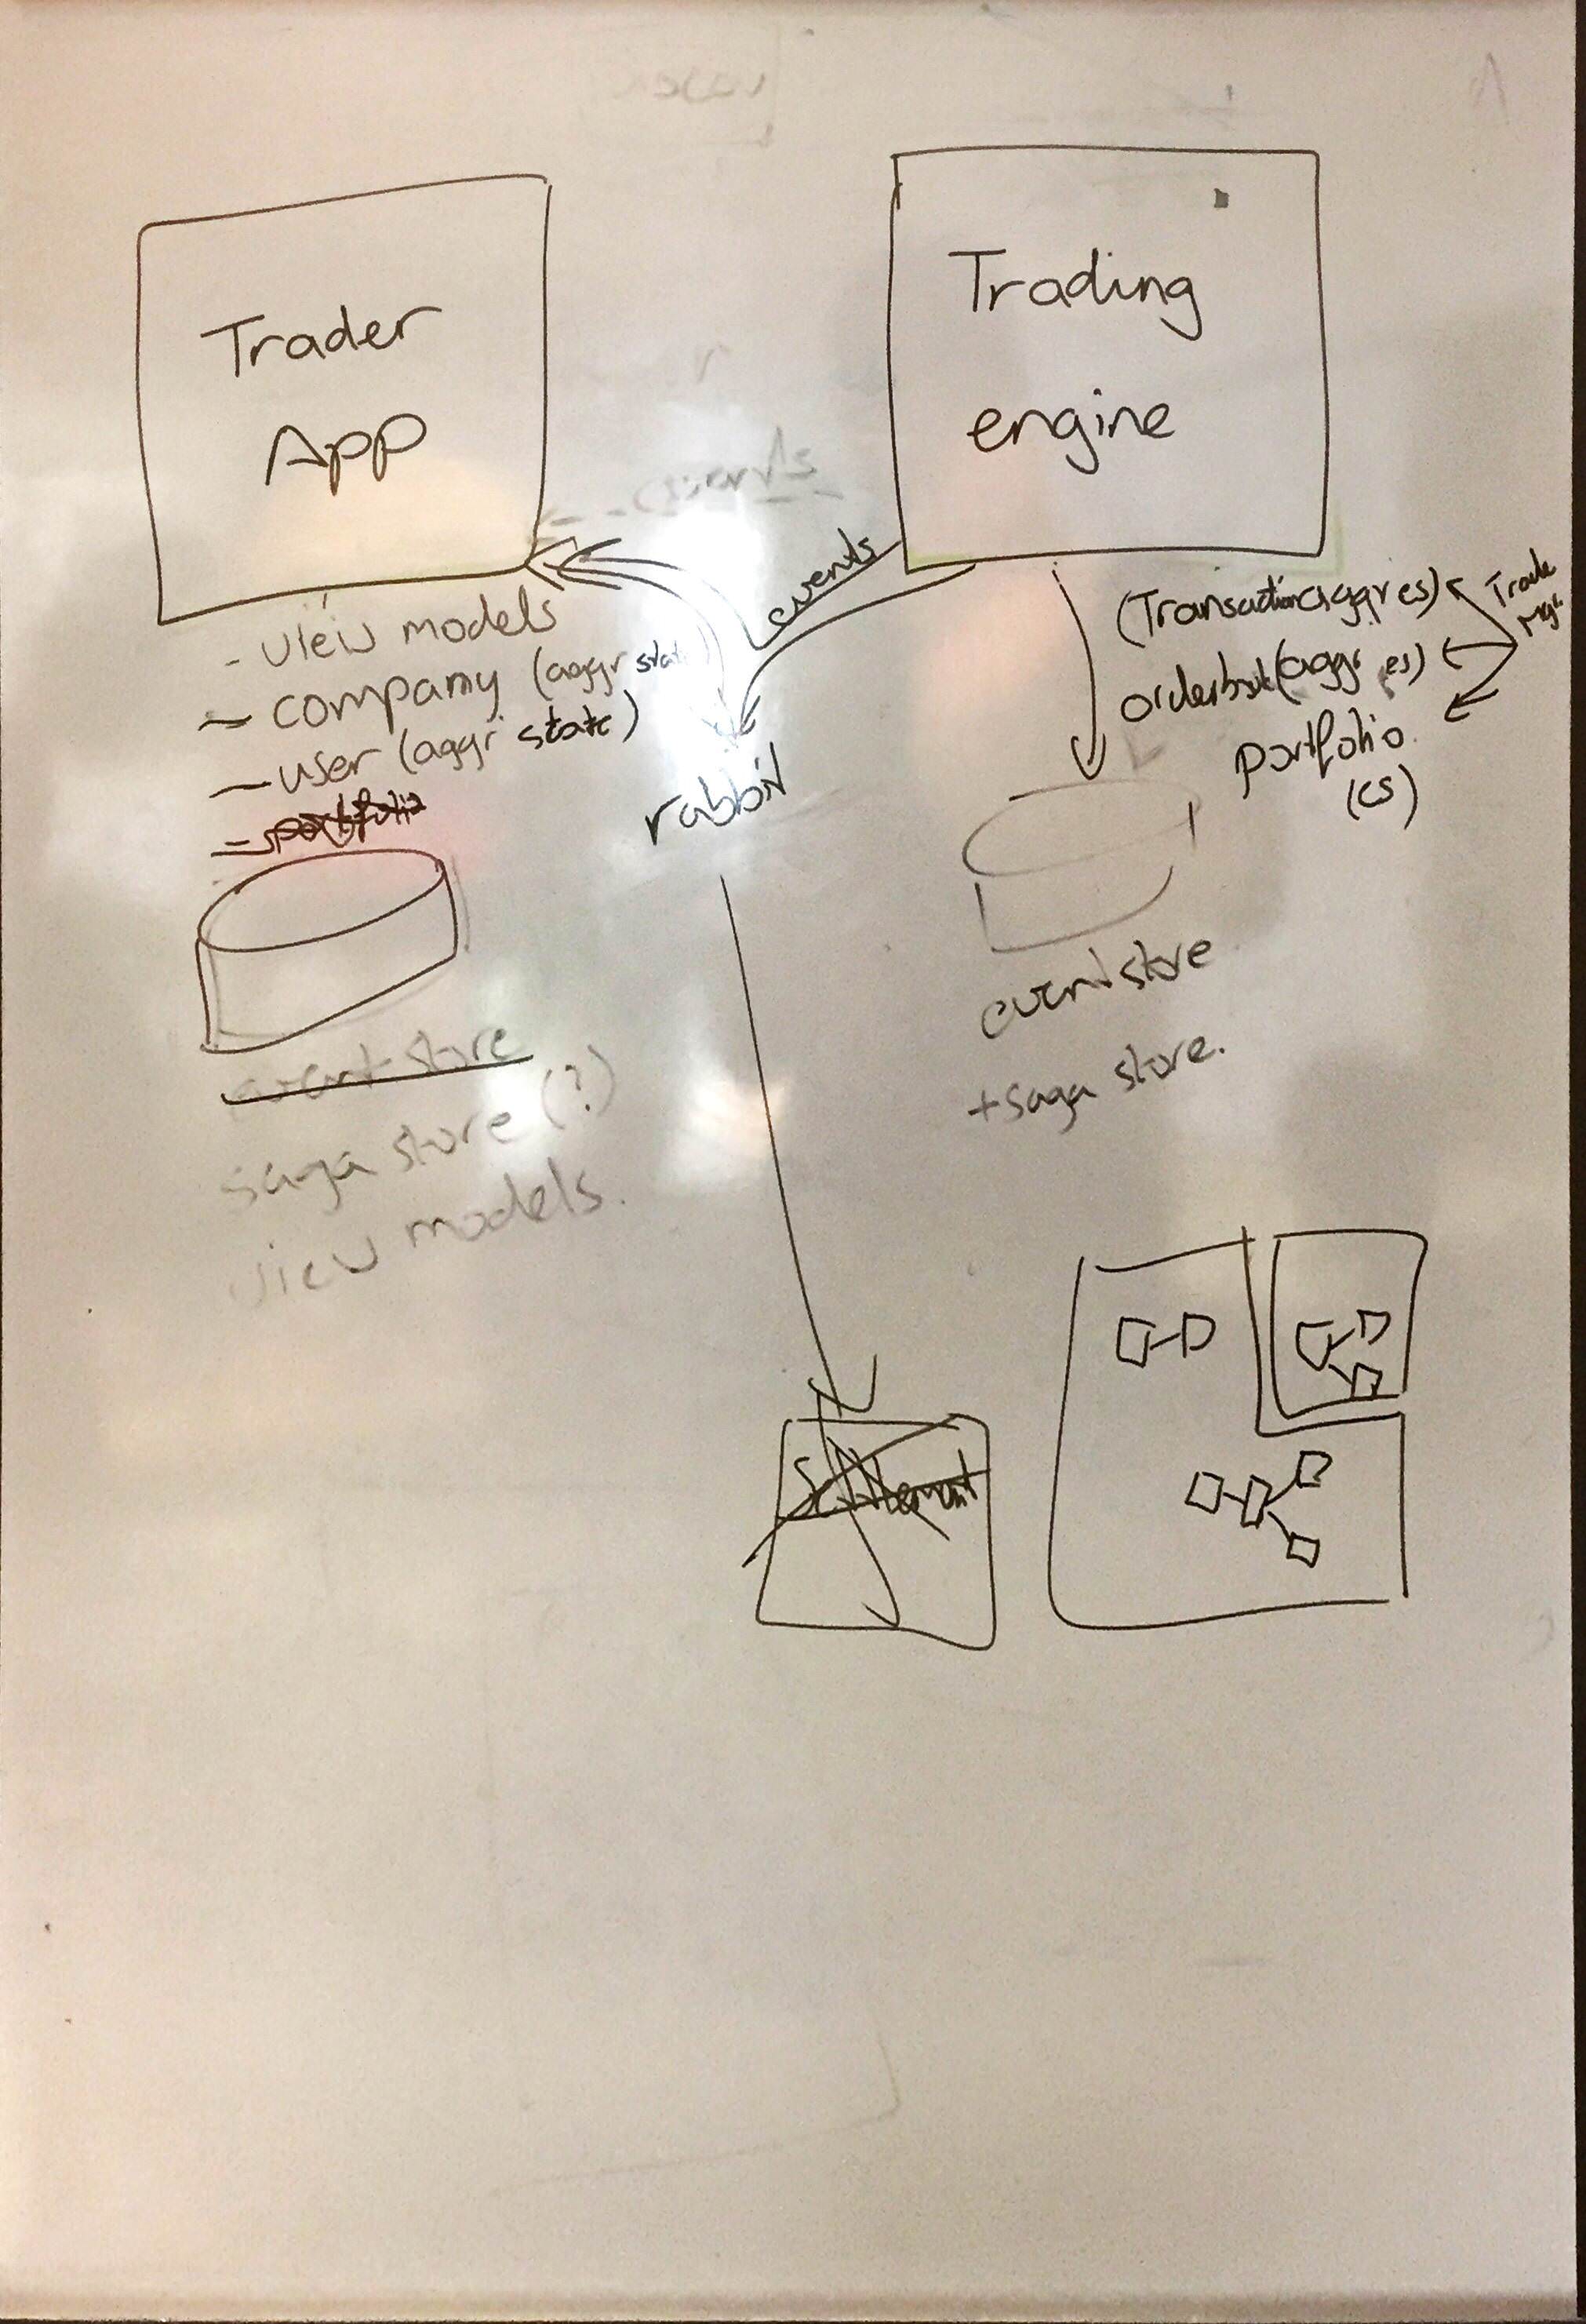 Trader
App
Trading
engine
events
events
- view models
- company (aggr state)
- user (aggr state)
- portfolio
rabbit
event store
saga store (?)
view models.
(Transaction(aggr es)
orderbook(aggr es)
portfolio
(es)
Trade
Mgr.
event store
+ saga store.
Settlement